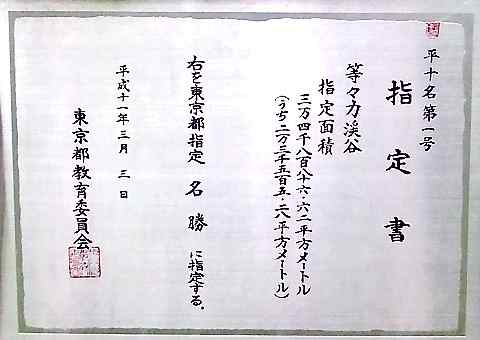 平十名第一号
指定書
等々力渓谷
指定面積
三万四千八百八十六・六二平方メートル
(うち二万三千五百五・二八平方メートル)
右を東京都指定 名勝 に指定する。
平成十一年三月三日
東京都教育委員会